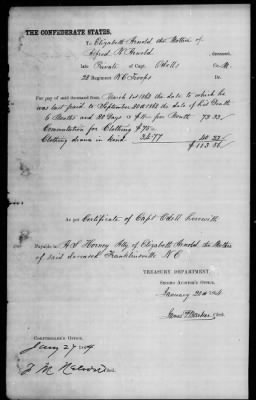 THE CONFEDERATE STATES.
To Elizabeth Arnold the Mother of
Alfred N Arnold, deceased,
late Private of Capt. Odells Co. M.
22 Regiment N C Troops Dr.
For pay of said deceased from March 1st 1862 the date to which he
was last paid to September 20th 1862 the date of his Death
6 Months and 20 Days @ $11 per Month 73 33
Commutation for Clothing
Clothing drawn in kind 34.77
$113 56
As per Certificate of Capt Odell herewith
Payable to A S Horney Atty of Elizabeth Arnold, the Mother
of said deceased Franklinsville N.C.
TREASURY DEPARTMENT,
SECOND AUDITOR'S OFFICE,
January 20th 1864
Clerk.
COMPTROLLER'S OFFICE,
Jany 27 1864
Clerk.